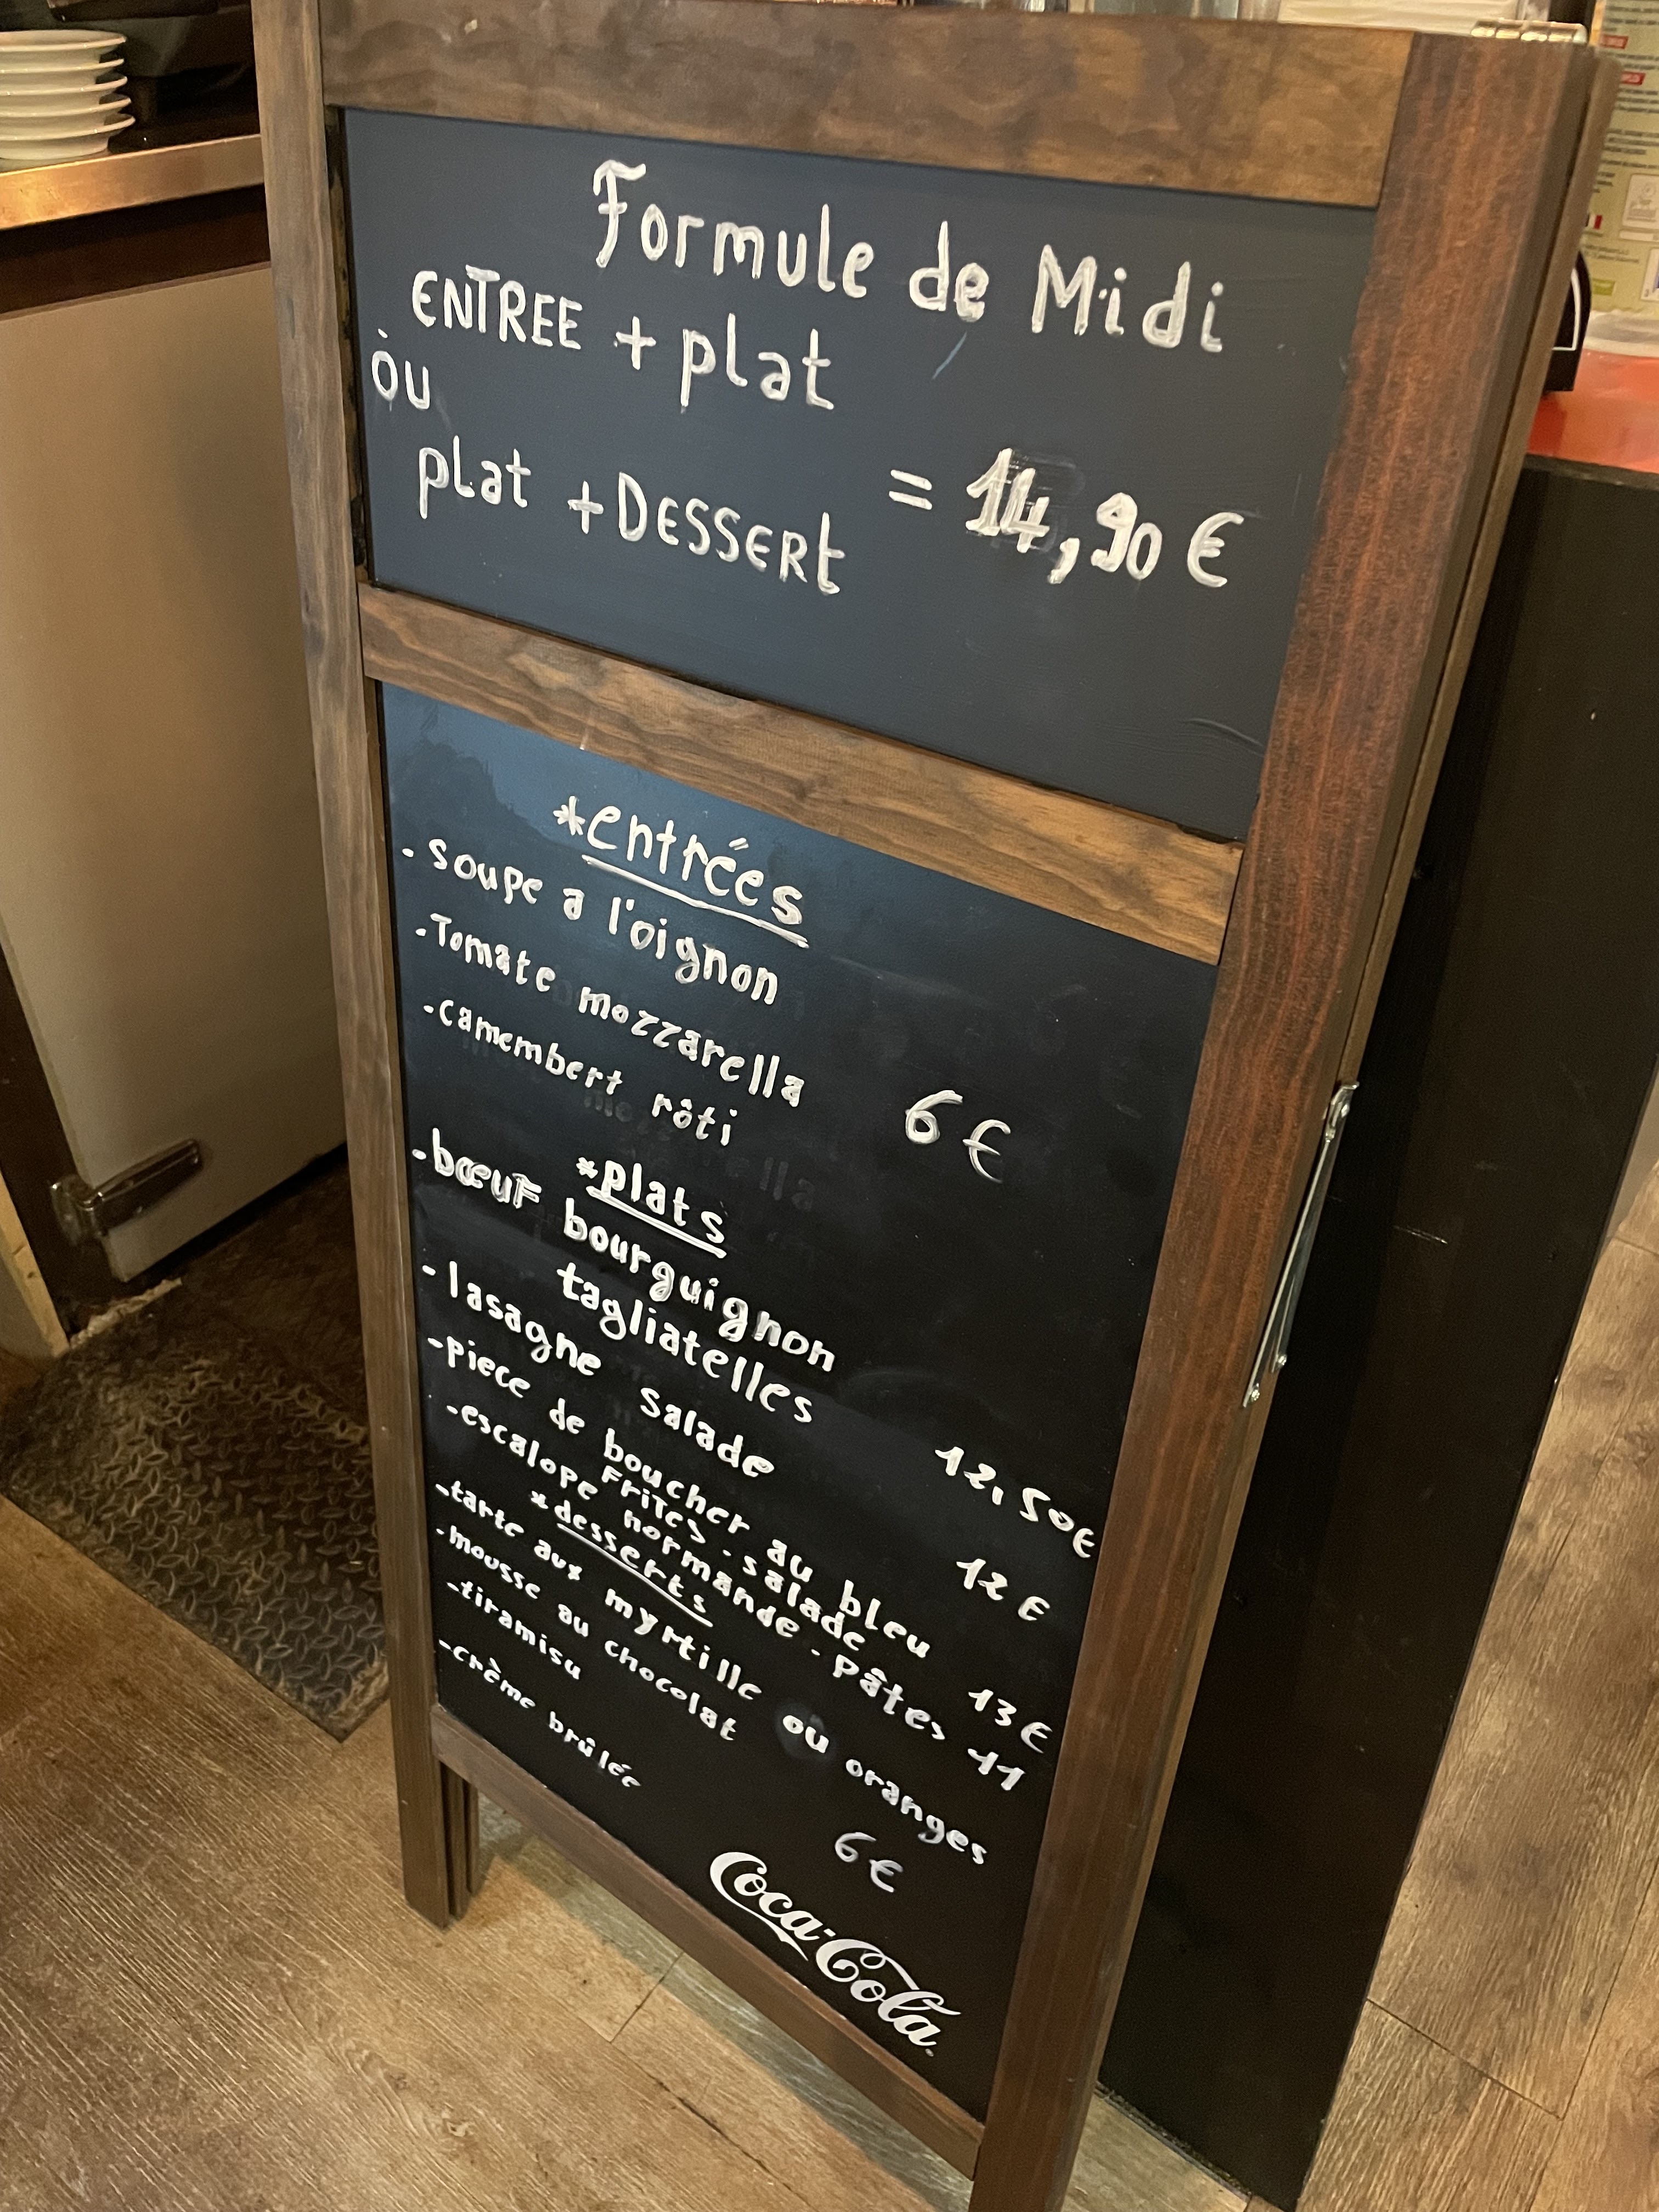 Formule de Midi
ENTREE + plat
òu
plat + DESSERt = 14,90 €
*entrées
- soupe a l'oignon
- Tomate mozzarella
- camembert rôti 6 €
*plats
- bœuf bourguignon
tagliatelles 12,50€
- lasagne Salade 12 €
- piece de boucher au bleu
FRITES - salade 13 €
- escalope normande - pâtes 11
*desserts
- tarte aux myrtille ou oranges
- mousse au chocolat
- tiramisu 6 €
- crème brûlée
Coca-Cola